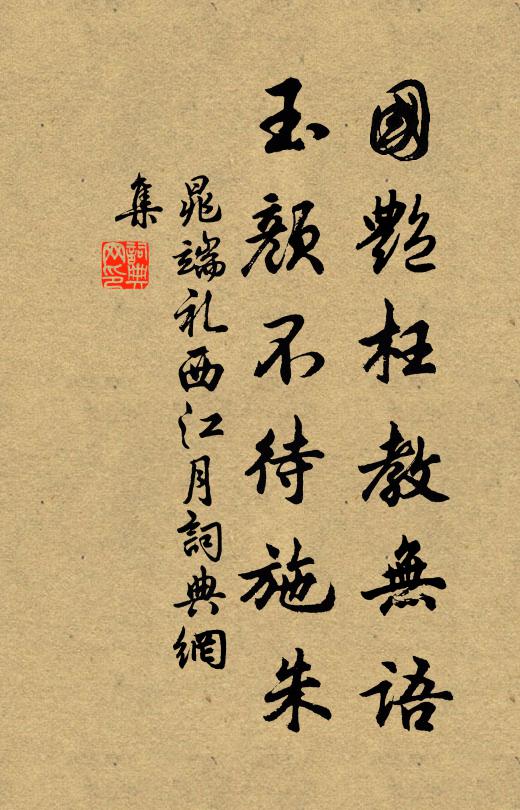 國艷枉教無語
玉顏不待施朱
晁端礼西江月詞典網
集
詞典
网印